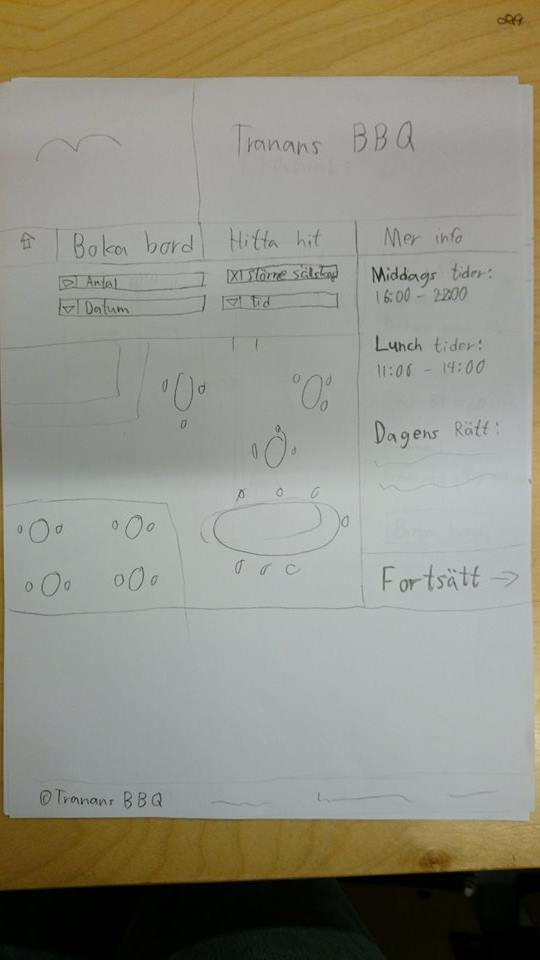 Tranans BBQ
Boka bord
Hitta hit
Mer info
Antal
större sälskap
Datum
tid
Middags tider:
16:00 - 22:00
Lunch tider:
11:00 - 14:00
Dagens Rätt:
Fortsätt →
© Tranans BBQ